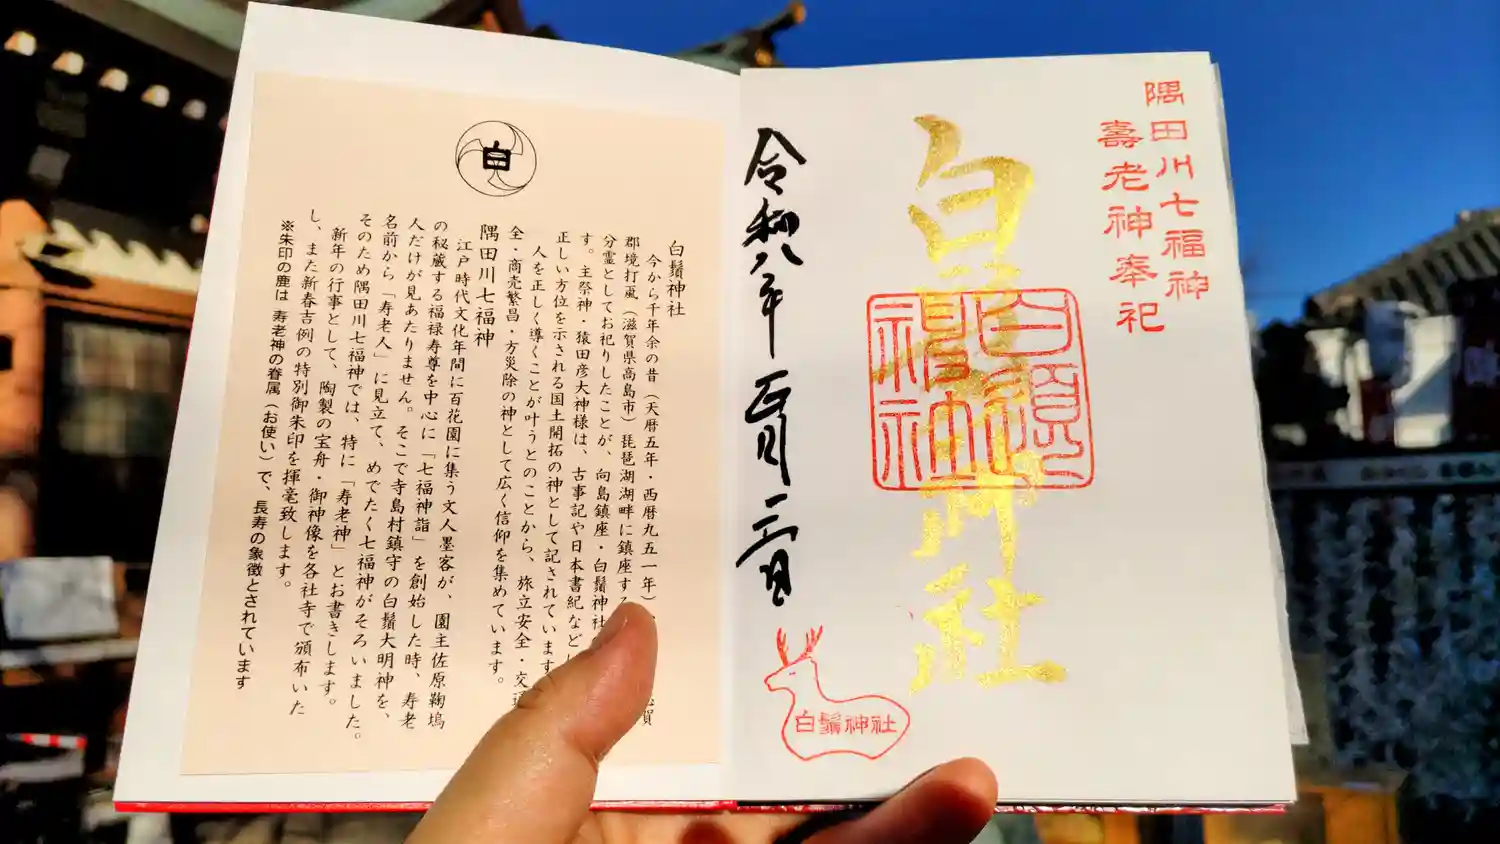 隅田川七福神
壽老神奉祀
白鬚神社
白鬚神社
令和八年
正月二日
白鬚神社
白
白鬚神社
今から千年余の昔（天暦五年・西暦九五一年）
郡境打颪（滋賀県高島市）琵琶湖湖畔に鎮座する
分霊としてお祀りしたことが、向島鎮座・白鬚神社
す。主祭神・猿田彦大神様は、古事記や日本書紀など
正しい方位を示される国土開拓の神として記されています
人を正しく導くことが叶うとのことから、旅立安全・交通
全・商売繁昌・方災除の神として広く信仰を集めています。
隅田川七福神
江戸時代文化年間に百花園に集う文人墨客が、園主佐原鞠塢
の秘蔵する福禄寿尊を中心に「七福神詣」を創始した時、寿老
人だけが見あたりません。そこで寺島村鎮守の白鬚大明神を、
名前から「寿老人」に見立て、めでたく七福神がそろいました。
そのため隅田川七福神では、特に「寿老神」とお書きします。
新年の行事として、陶製の宝舟・御神像を各社寺で頒布いた
し、また新春吉例の特別御朱印を揮毫致します。
※朱印の鹿は 寿老神の眷属（お使い）で、長寿の象徴とされています